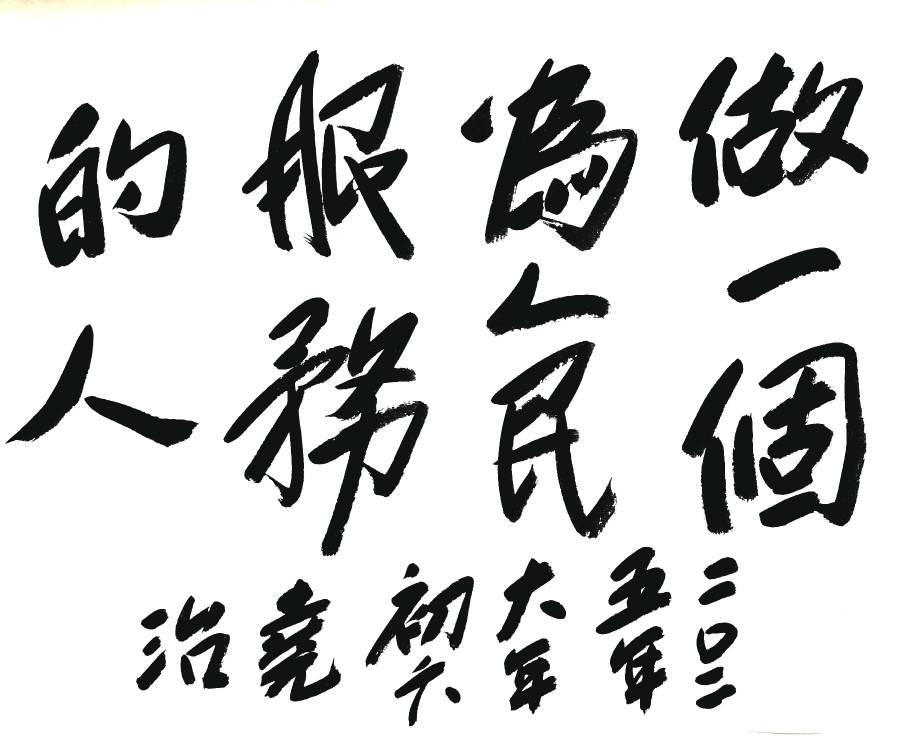 做一個
為人民
服務
的人
二〇二
五年
大年
初六
堯
治